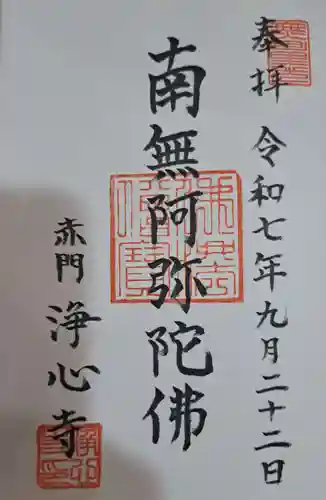 奉拝 令和七年九月二十二日
南無阿弥陀佛
赤門 浄心寺
佛法僧寶